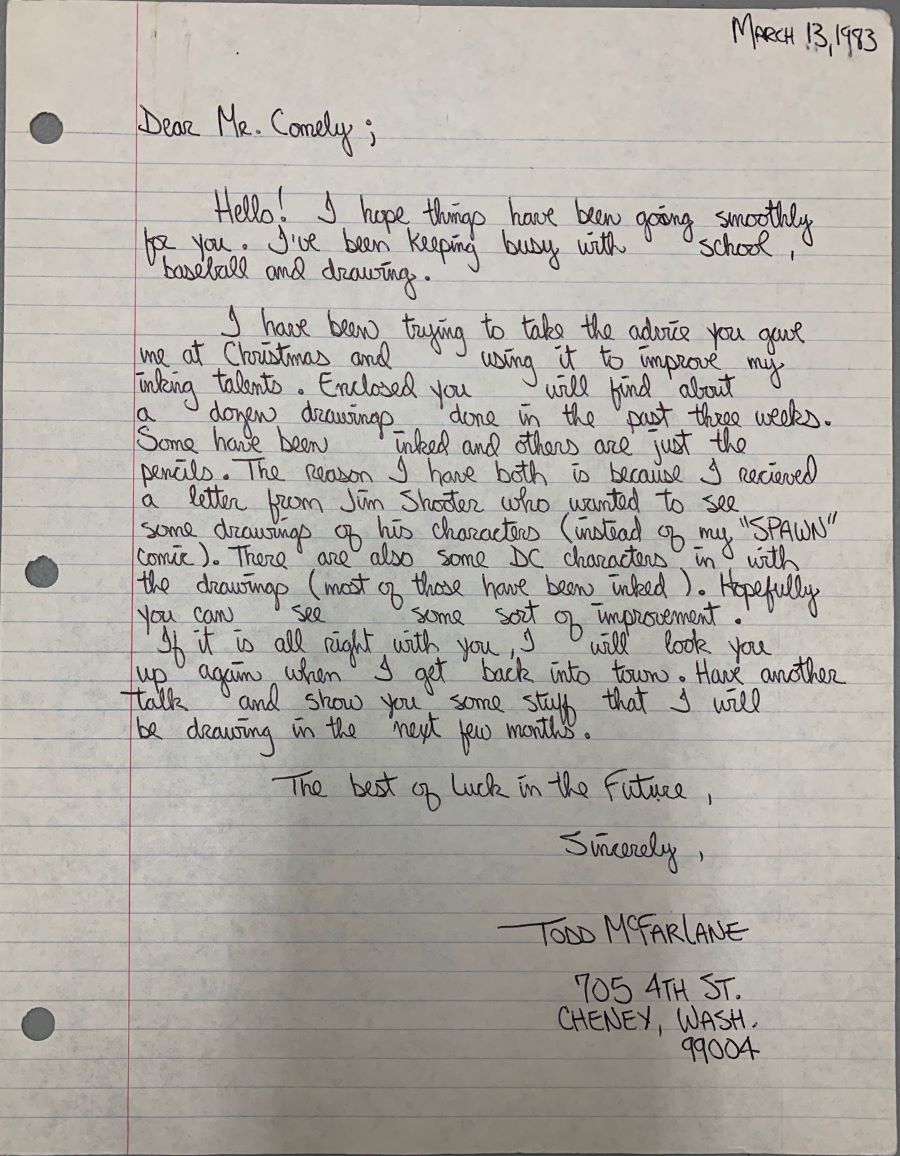 MARCH 13, 1983
Dear Mr. Comely;
Hello! I hope things have been going smoothly
for you. I've been keeping busy with school,
baseball and drawing.
I have been trying to take the advice you gave
me at Christmas and using it to improve my
inking talents. Enclosed you will find about
a dozen drawings done in the past three weeks.
Some have been inked and others are just the
pencils. The reason I have both is because I recieved
a letter from Jim Shooter who wanted to see
some drawings of his characters (instead of my "SPAWN"
comic). There are also some DC characters in with
the drawings (most of those have been inked). Hopefully
you can see some sort of improvement.
If it is all right with you, I will look you
up again when I get back into town. Have another
talk and show you some stuff that I will
be drawing in the next few months.
The best of luck in the Future,
Sincerely,
TODD McFARLANE
705 4TH ST.
CHENEY, WASH.
99004